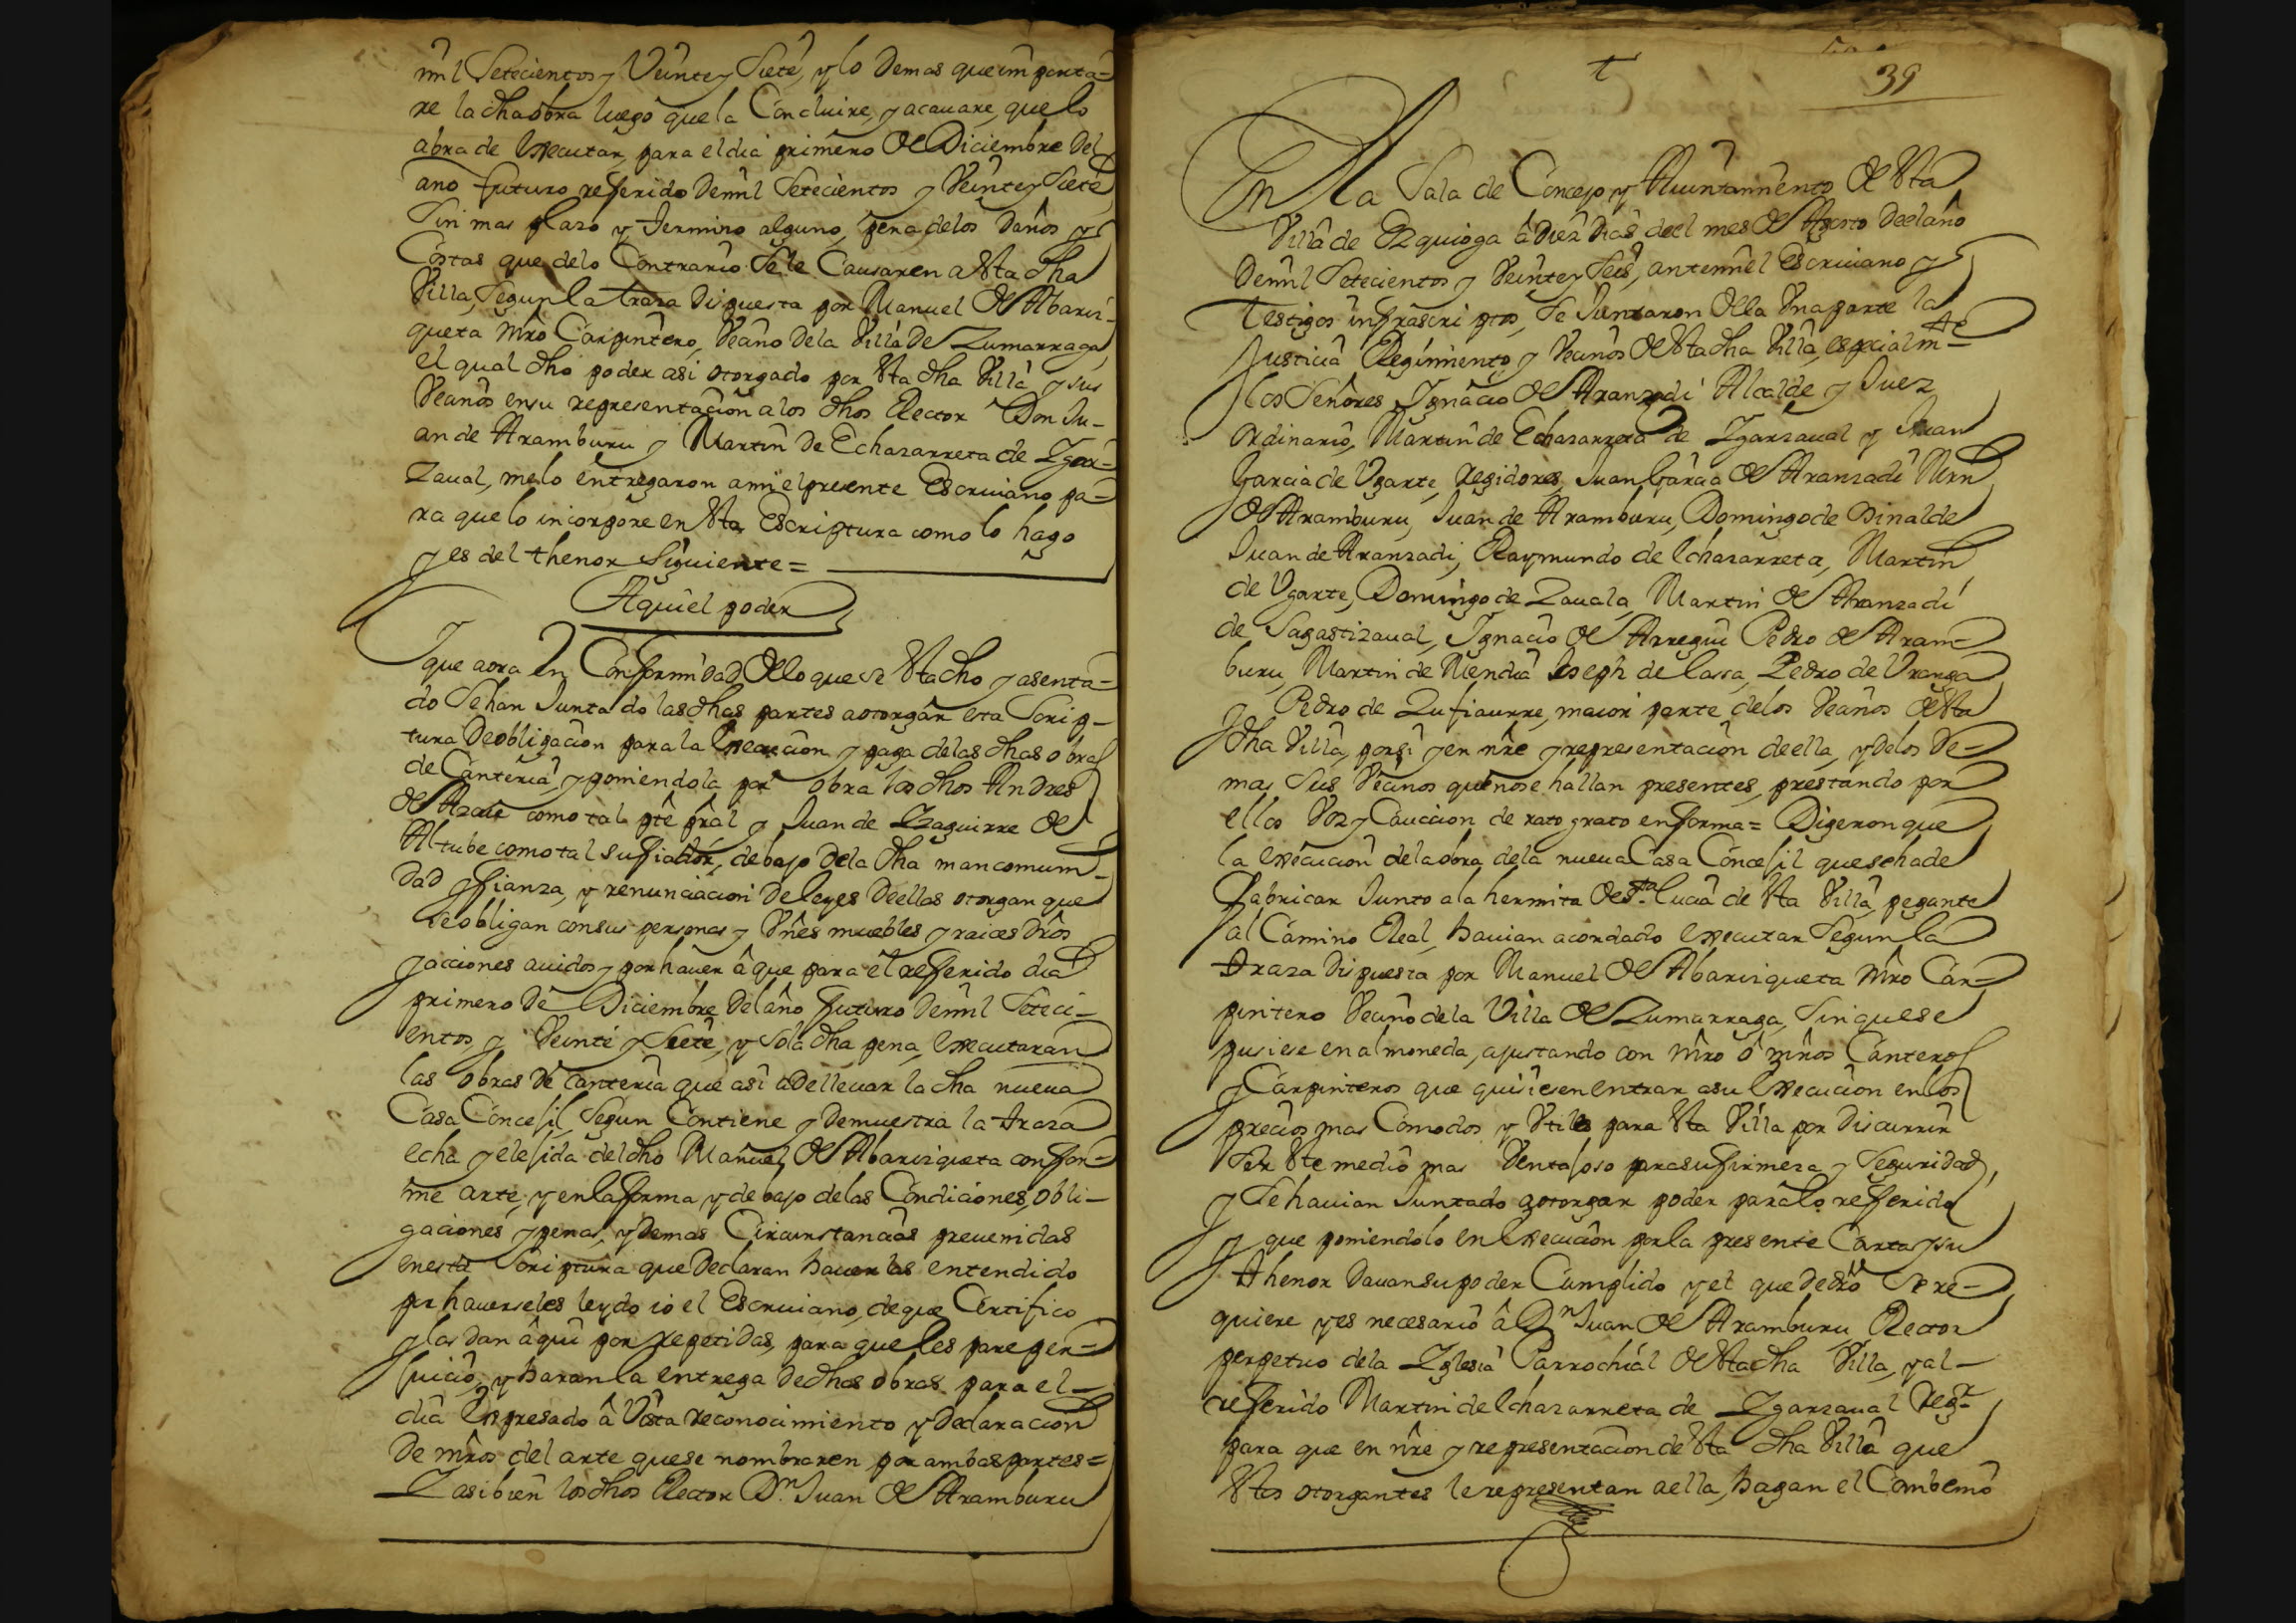 mil Setecientos y Veinte y Siete, y lo demas que importa=
re la dha obra luego que la Concluire, y acauare, que lo
abra de executar, para el dia primero de Diciembre del
ano futuro referido de mil Setecientos y Veinte y Siete
Sin mas plazo y termino alguno, pena de los daños y
Costas que de lo Contrario Se le Causaren a esta dha
Villa, Segun la traza dispuesta por Manuel de Abaris-
queta mro Carpintero, Vecino de la Villa de Zumarraga
el qual dho poder asi otorgado por esta dha Villa y sus
Vecinos en su representacion a los dhos Rector Don Ju-
an de Aramburu y Martin de Echazarreta de Igar=
zaual, me lo entregaron a mi el presente Escriuano pa=
ra que lo incorpore en esta Escriptura como lo hago
y es del thenor Siguiente=
Aqui el poder
Y que aora en Conformidad de lo que se esta dho y asenta=
do Se han Juntado las dhas partes a otorgar esta Scrip-
tura de obligacion para la execucion y paga de las dhas obras
de Canteria, y poniendola por obra los dhos Andres
de como tal pte pral y Juan de Yzaguirre de
Altube como tal su fiador, debajo de la dha mancomuni-
dad y fianza, y renunciacion de leyes de ellas otorgan que
se obligan con sus personas y Vnes muebles y raices dros
y acciones auidos y por hauer â que para el referido dia
primero de Diciembre del año futuro de mil Seteci-
entos, y Veinte y Siete, y So la dha pena, executaran
las obras de canteria que asi a de lleuar la dha nueua
Casa Concejil, Segun Contiene y demuestra la traza
echa y elejida del dho Manuel de Abarisqueta confor=
me arte, y en la forma y debajo de las Condiciones, obli-
gaciones y penas, y demas Circunstancias preuenidas
en esta Scriptura que declaran hauerlas entendido
por hauerseles leydo io el Escriuano, de que Certifico
y las dan aqui por repetidas, para que les pare per=
juicio, y haran la entrega de dhas obras para el-
dia expresado â Vista reconocimiento y declaracion
de mros del arte que se nombraren por ambas partes=
Y asi bien los dhos Rector Dn Juan de Aramburu
t
39
En la Sala de Concejo y Aiuntamiento de esta
Villa de Ezquioga â diez dias de el mes de Agosto de el año
de mil Setecientos y Veinte y Seis, ante mi el Escriuano y
testigos infrascriptos, Se Juntaron de la Vna parte la
Justicia Regimiento y Vecinos de esta dha Villa, especialmte
los Señores Ignacio de Aranzadi Alcalde y Juez
ordinario, Martin de Echazarreta de Igarzaual y Juan
Garcia de Vgarte, regidores, Juan Garcia de Aranzadi Mrn
de Aramburu, Juan de Aramburu, Domingo de Oinalde
Juan de Aranzadi, Raymundo de echazarreta, Martin
de Vgarte, Domingo de Zauala, Martin de Aranzadi
de Sagastizaual, Ignacio de Arregui Pedro de Aram=
buru, Martin de Mendia Joseph de lassa, Pedro de Vranga
y Pedro de Zufiaurre, maior parte de los Vecinos de esta
dha Villa, por si y en nre y representacion de ella, y de los de=
mas Sus Vecinos que no se hallan presentes, prestando por
ellos Voz y Caucion de rato grato en forma= Digeron que
la execucion de la obra de la nueua Casa Concejil que se ha de
fabricar Junto a la hermita de Sta lucia de esta Villa, pegante
al Camino Real, hauian acordado executar Segun la
traza dispuesta por Manuel de Abarisqueta mro Car=
pintero Vecino de la Villa de Zumarraga, Sin que se
pusiese en almoneda, ajustando con mro o mros Canteros
y Carpinteros que quisiesen entrar a su execucion en los
precios mas Comodos y Vtiles para esta Villa por discurrir
Ser este medio mas Ventajoso para su firmeza y Seguridad,
y Se hauian Juntado a otorgar poder para lo referido
y que poniendolo en execucion por la presente Carta y su
thenor dauan su poder Cumplido y el que de dro Se re=
quiere y es necesario â Dn Juan de Aramburu Rector
perpetuo de la Iglesia Parrochial de esta dha Villa, y al-
referido Martin de echazarreta de Igarzaual Regor
para que en nre y representacion de esta dha Villa que
estos otorgantes le representan a ella, hagan el Combenio